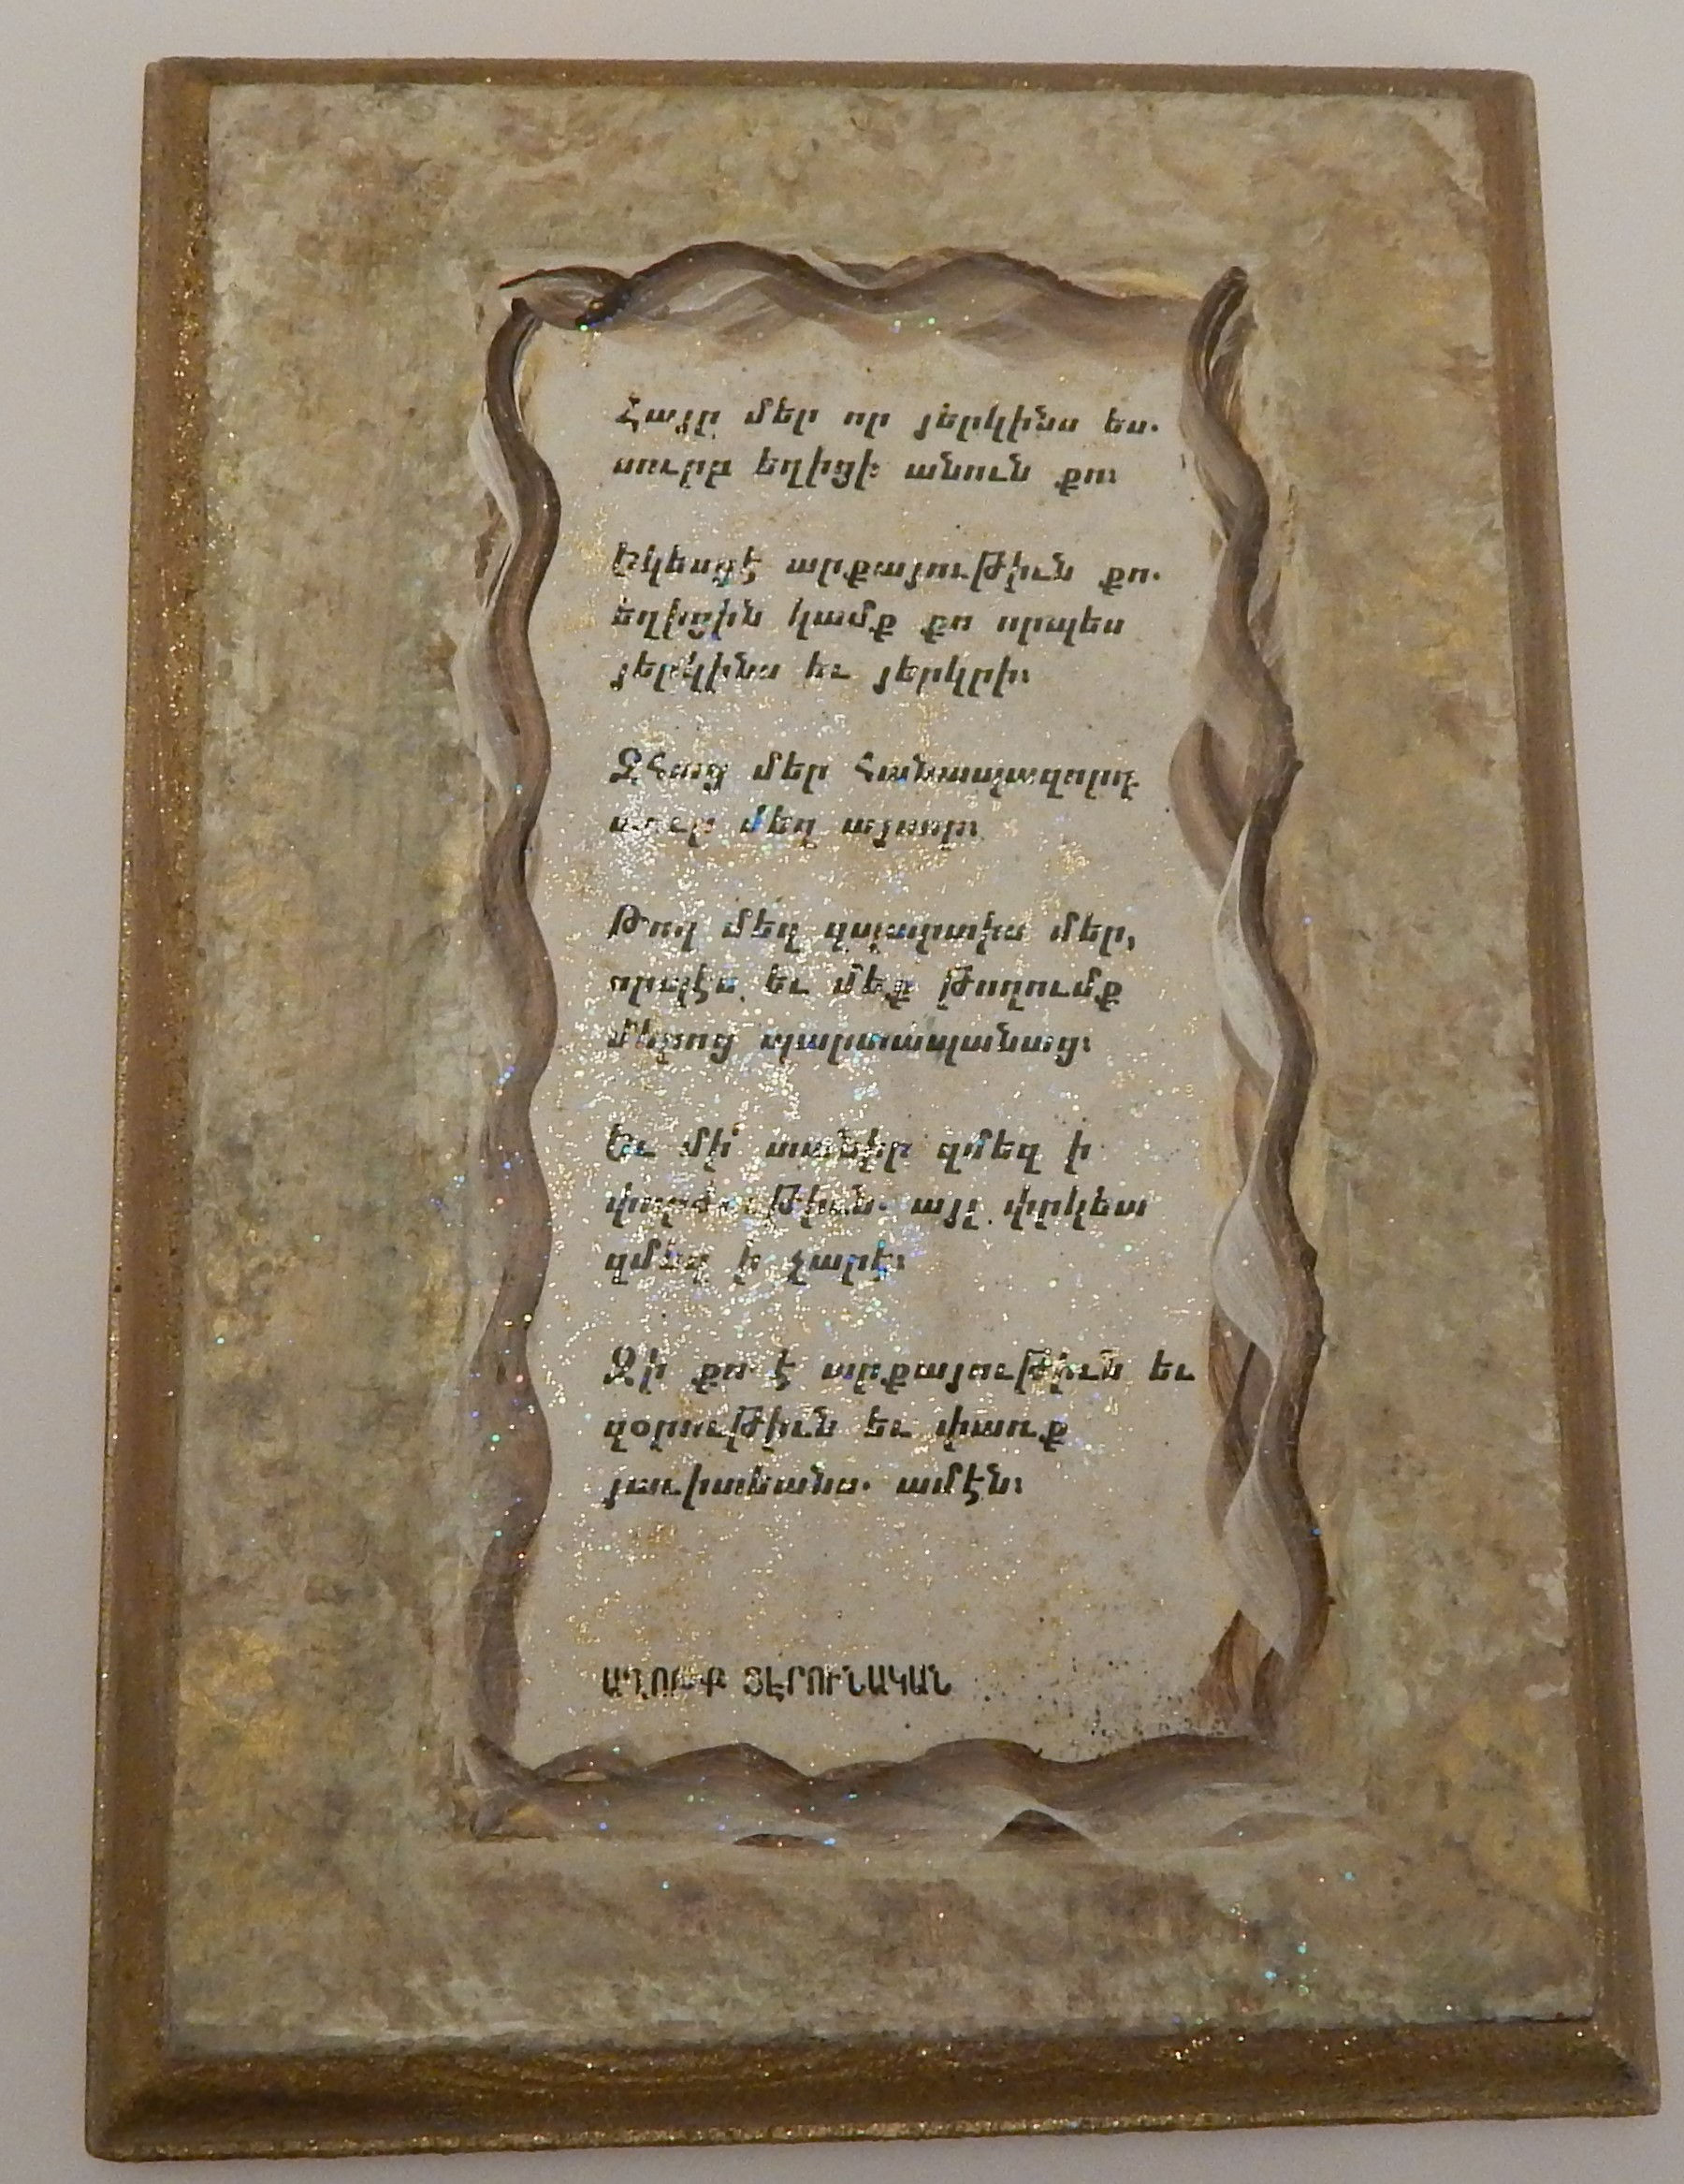 Հայր մեր որ յերկինս ես.
սուրբ եղիցի անուն քո։
Եկեսցէ արքայութիւն քո.
եղիցին կամք քո որպես
յերկինս եւ յերկրի։
Զհաց մեր հանապազորդ
տուր մեզ այսօր։
Թող մեզ զպարտիս մեր,
որպէս եւ մեք թողումք
մերոց պարտապանաց։
Եւ մի տանիր զմեզ ի
փորձութիւն. այլ փրկեա
զմեզ ի չարէ։
Զի քո է արքայութիւն եւ
զօրութիւն եւ փառք
յաւիտեանս. ամէն։
ԱՂՕԹՔ ՏԷՐՈՒՆԱԿԱՆ